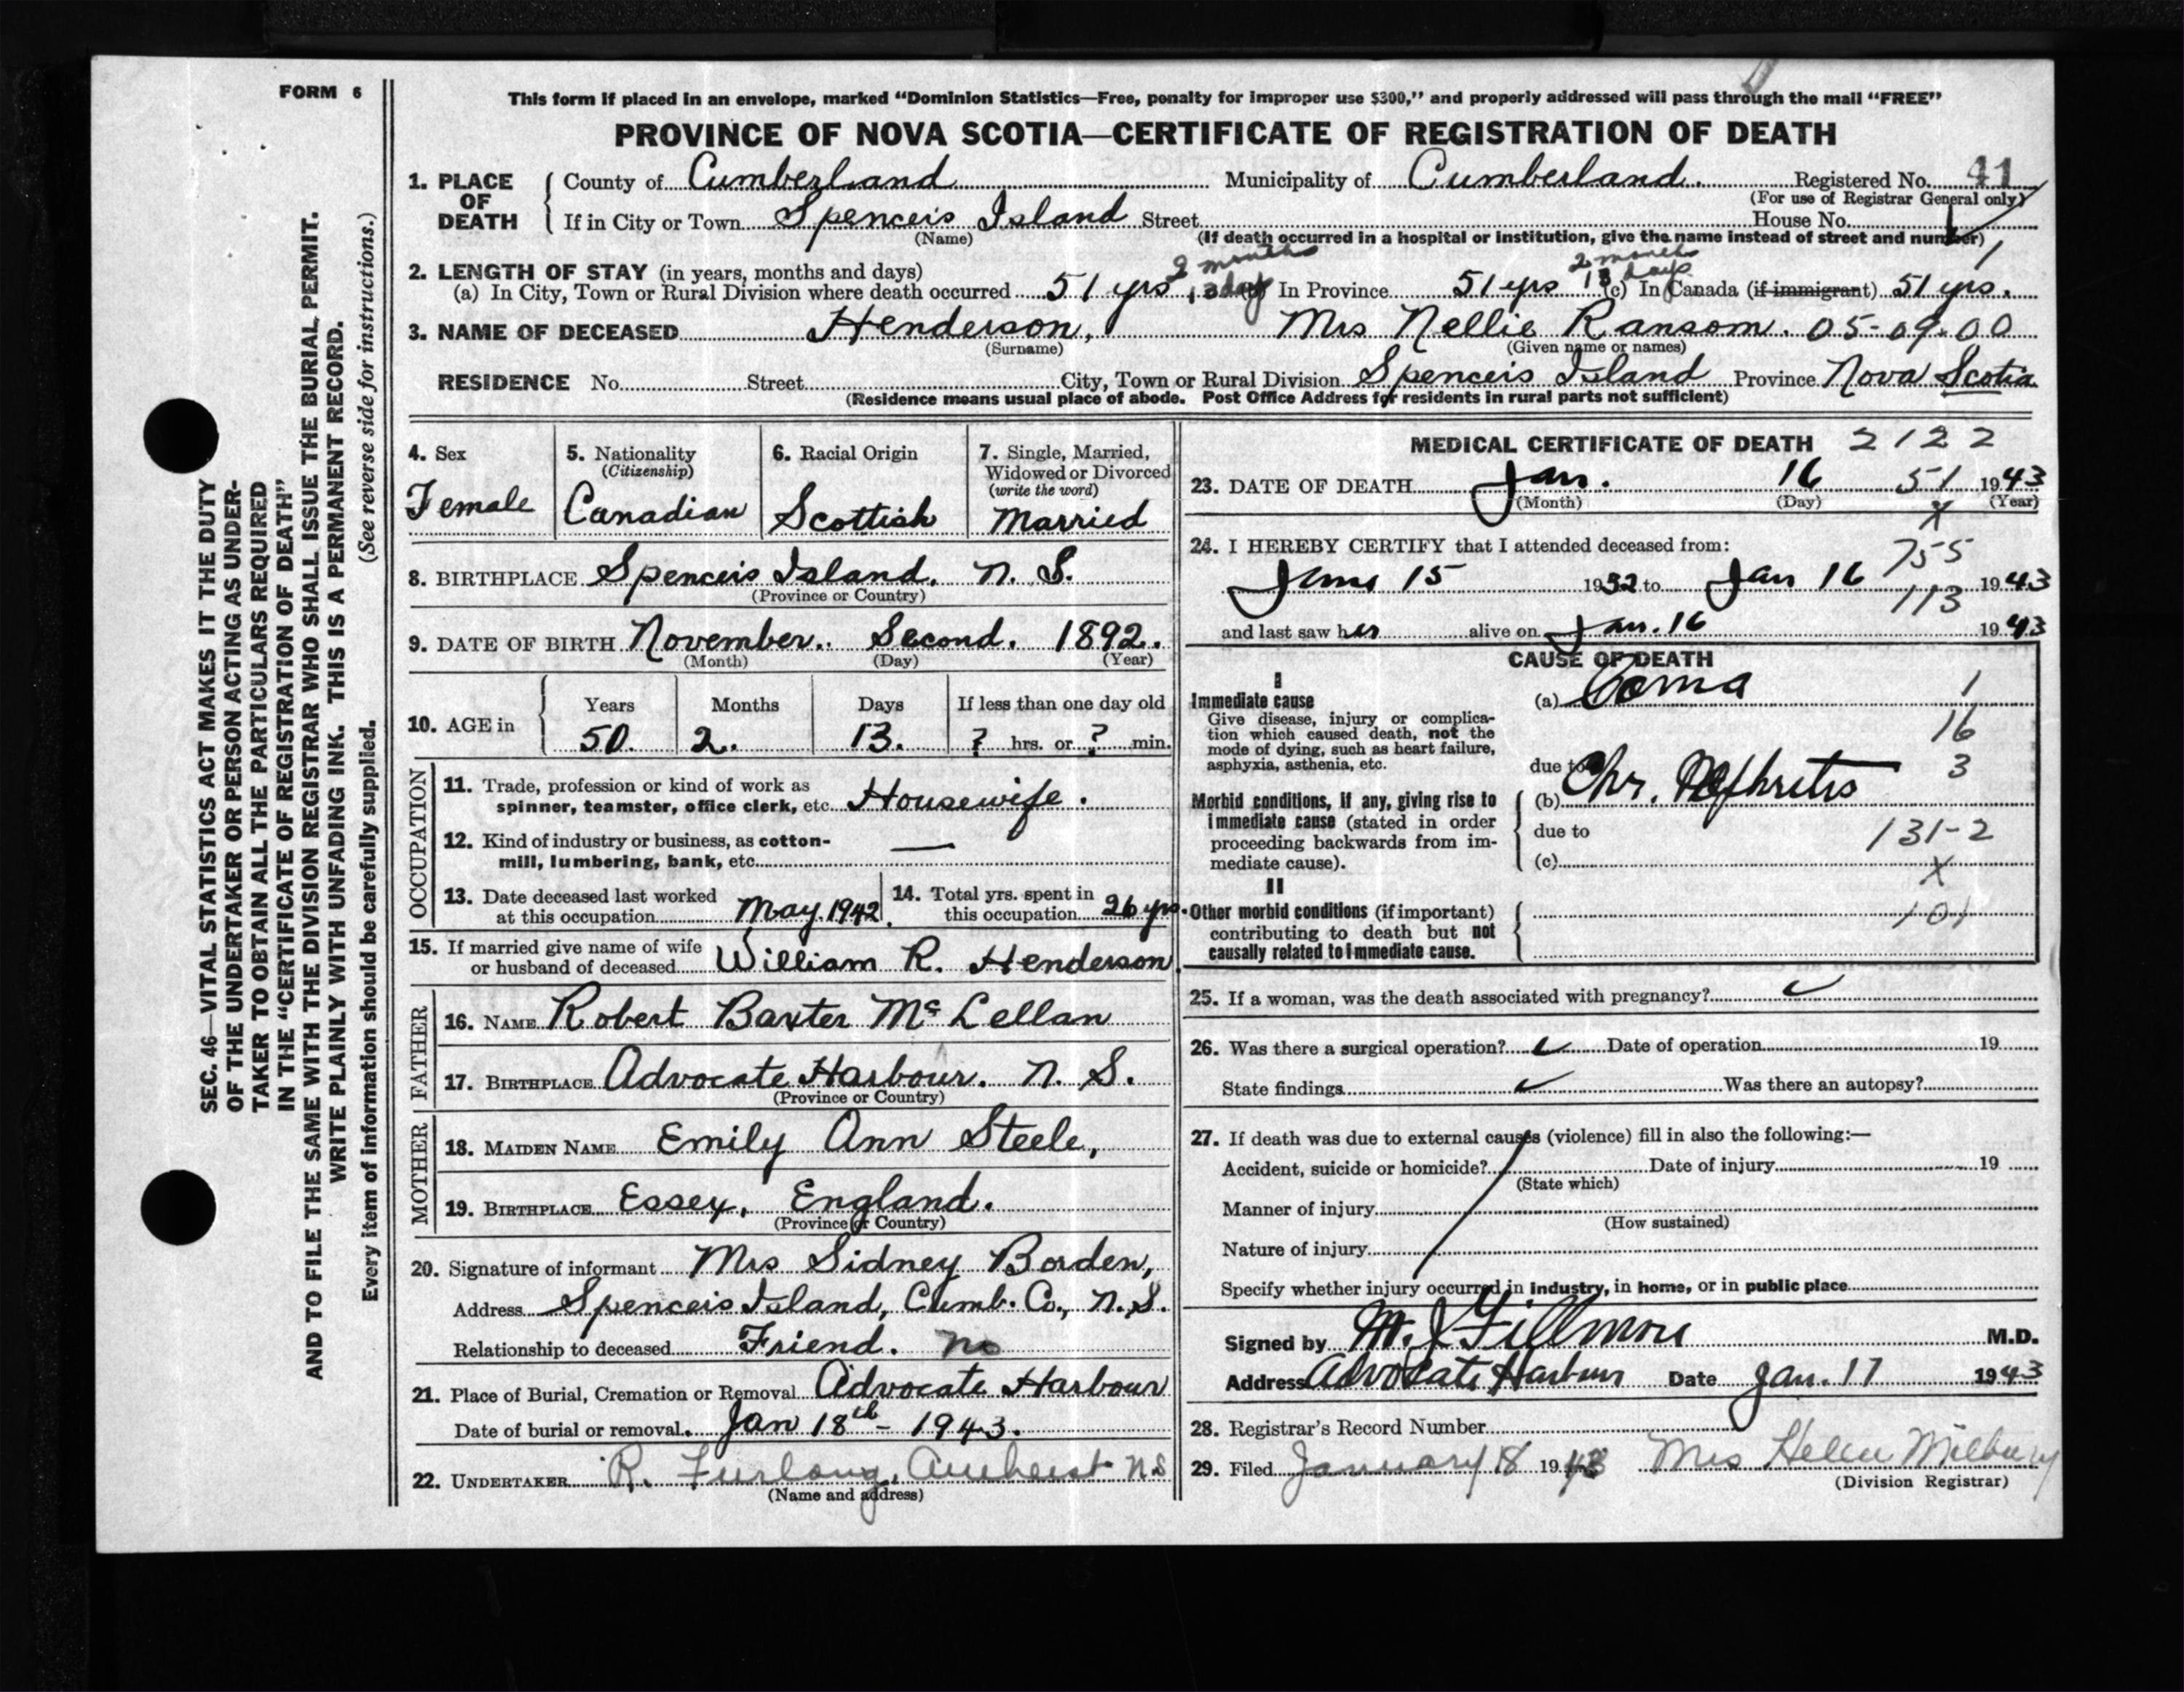 FORM 6
This form if placed in an envelope, marked “Dominion Statistics—Free, penalty for improper use $300,” and properly addressed will pass through the mail “FREE”
PROVINCE OF NOVA SCOTIA—CERTIFICATE OF REGISTRATION OF DEATH
1. PLACE OF DEATH County of Cumberland Municipality of Cumberland. Registered No. 41
(For use of Registrar General only)
If in City or Town Spencers Island Street House No.
(Name) (If death occurred in a hospital or institution, give the name instead of street and number)
2. LENGTH OF STAY (in years, months and days)
(a) In City, Town or Rural Division where death occurred 51 yrs 2 months 13 days (b) In Province 51 yrs 2 months 13 days (c) In Canada (if immigrant) 51 yrs.
3. NAME OF DECEASED Henderson, Mrs Nellie Ransom. 05-09.00
(Surname) (Given name or names)
RESIDENCE No. Street City, Town or Rural Division Spencers Island Province Nova Scotia
(Residence means usual place of abode. Post Office Address for residents in rural parts not sufficient)
4. Sex Female
5. Nationality (Citizenship) Canadian
6. Racial Origin Scottish
7. Single, Married, Widowed or Divorced (write the word) Married
8. BIRTHPLACE Spencers Island. N. S.
(Province or Country)
9. DATE OF BIRTH November. Second. 1892.
(Month) (Day) (Year)
10. AGE in Years 50. Months 2. Days 13. If less than one day old ? hrs. or ? min.
OCCUPATION
11. Trade, profession or kind of work as
spinner, teamster, office clerk, etc. Housewife.
12. Kind of industry or business, as cotton-
mill, lumbering, bank, etc. —
13. Date deceased last worked
at this occupation May. 1942.
14. Total yrs. spent in
this occupation 26 yrs.
15. If married give name of wife
or husband of deceased William R. Henderson.
FATHER
16. NAME Robert Baxter McLellan
17. BIRTHPLACE Advocate Harbour. N. S.
(Province or Country)
MOTHER
18. MAIDEN NAME Emily Ann Steele,
19. BIRTHPLACE Essex, England.
(Province or Country)
20. Signature of informant Mrs Sidney Borden,
Address Spencers Island, Cumb. Co., N.S.
Relationship to deceased Friend. no
21. Place of Burial, Cremation or Removal Advocate Harbour
Date of burial or removal. Jan 18th - 1943.
22. UNDERTAKER R. Furlong, Amherst NS
(Name and address)
MEDICAL CERTIFICATE OF DEATH 2122
23. DATE OF DEATH Jan. 16 51 1943
(Month) (Day) (Year)
X
24. I HEREBY CERTIFY that I attended deceased from: 755
June 15 1932 to Jan 16 1943
113
and last saw her alive on Jan. 16 1943
CAUSE OF DEATH
I
Immediate cause (a) Coma 1
Give disease, injury or complica-
tion which caused death, not the
mode of dying, such as heart failure,
asphyxia, asthenia, etc.
16
due to 3
Morbid conditions, if any, giving rise to
immediate cause (stated in order
proceeding backwards from im-
mediate cause).
(b) Chr. Nephritis
due to 131-2
(c) X
II
Other morbid conditions (if important)
contributing to death but not
causally related to immediate cause.
101
25. If a woman, was the death associated with pregnancy? ✓
26. Was there a surgical operation? ✓ Date of operation 19
State findings ✓ Was there an autopsy?
27. If death was due to external causes (violence) fill in also the following:—
Accident, suicide or homicide? Date of injury 19
(State which)
Manner of injury
(How sustained)
Nature of injury
Specify whether injury occurred in industry, in home, or in public place
Signed by M. J. Fillmore M.D.
Address Advocate Harbour Date Jan. 17 1943
28. Registrar’s Record Number
29. Filed January 18 1943 Mrs Helen Milbury
(Division Registrar)
SEC. 46—VITAL STATISTICS ACT MAKES IT THE DUTY
OF THE UNDERTAKER OR PERSON ACTING AS UNDER-
TAKER TO OBTAIN ALL THE PARTICULARS REQUIRED
IN THE “CERTIFICATE OF REGISTRATION OF DEATH”
AND TO FILE THE SAME WITH THE DIVISION REGISTRAR WHO SHALL ISSUE THE BURIAL PERMIT.
WRITE PLAINLY WITH UNFADING INK. THIS IS A PERMANENT RECORD.
Every item of information should be carefully supplied. (See reverse side for instructions.)